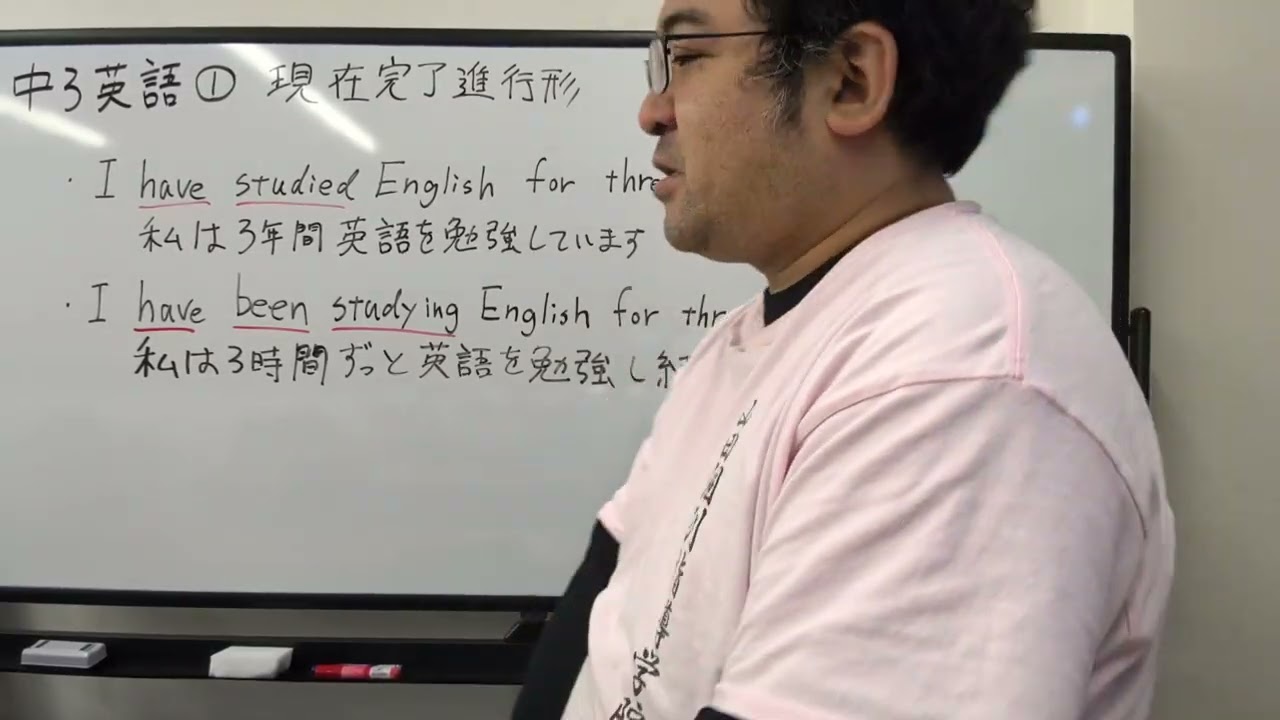 中3英語① 現在完了進行形
・I have studied English for
私は3年間英語を勉強しています
・I have been studying English for
私は3時間ずっと英語を勉強し